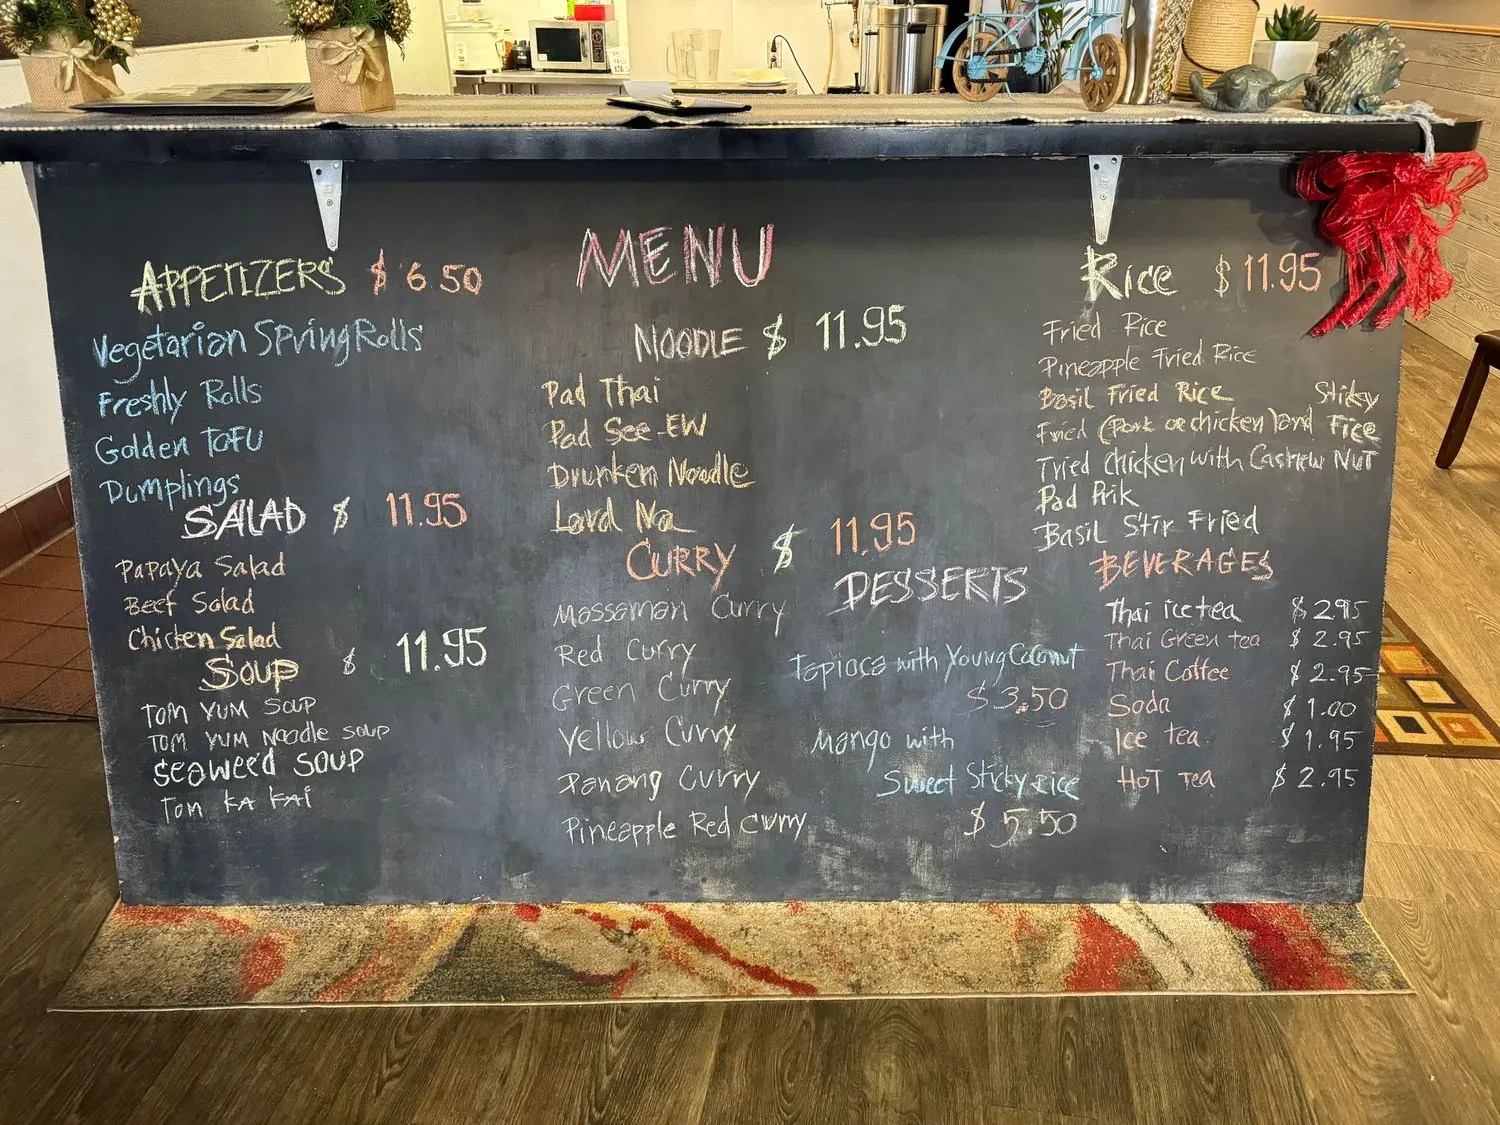 MENU
APPETIZERS $ 6.50
Vegetarian Spring Rolls
Freshly Rolls
Golden TOFU
Dumplings
SALAD $ 11.95
Papaya Salad
Beef Salad
Chicken Salad
Soup $ 11.95
Tom YUM Soup
TOM YUM Noodle Soup
Seaweed Soup
Tom KA KAI
NOODLE $ 11.95
Pad Thai
Pad See-EW
Drunken Noodle
Lard Na
CURRY $ 11.95
Massaman Curry
Red Curry
Green Curry
Yellow Curry
Panang Curry
Pineapple Red Curry
DESSERTS
Tapioca with Young Coconut
$ 3.50
Mango with
Sweet Sticky Rice
$ 5.50
Rice $ 11.95
Fried Rice
Pineapple Fried Rice
Basil Fried Rice Sticky
Fried (Pork or chicken) and Fice
Fried Chicken with Cashew NUT
Pad Prik
Basil Stir Fried
BEVERAGES
Thai ice tea $ 2.95
Thai Green tea $ 2.95
Thai Coffee $ 2.95
Soda $ 1.00
Ice tea $ 1.95
HOT Tea $ 2.95